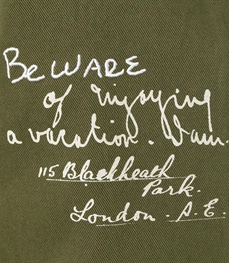 BEWARE
of enjoying
a vacation. I am.
115 Blackheath
Park.
London. S.E.